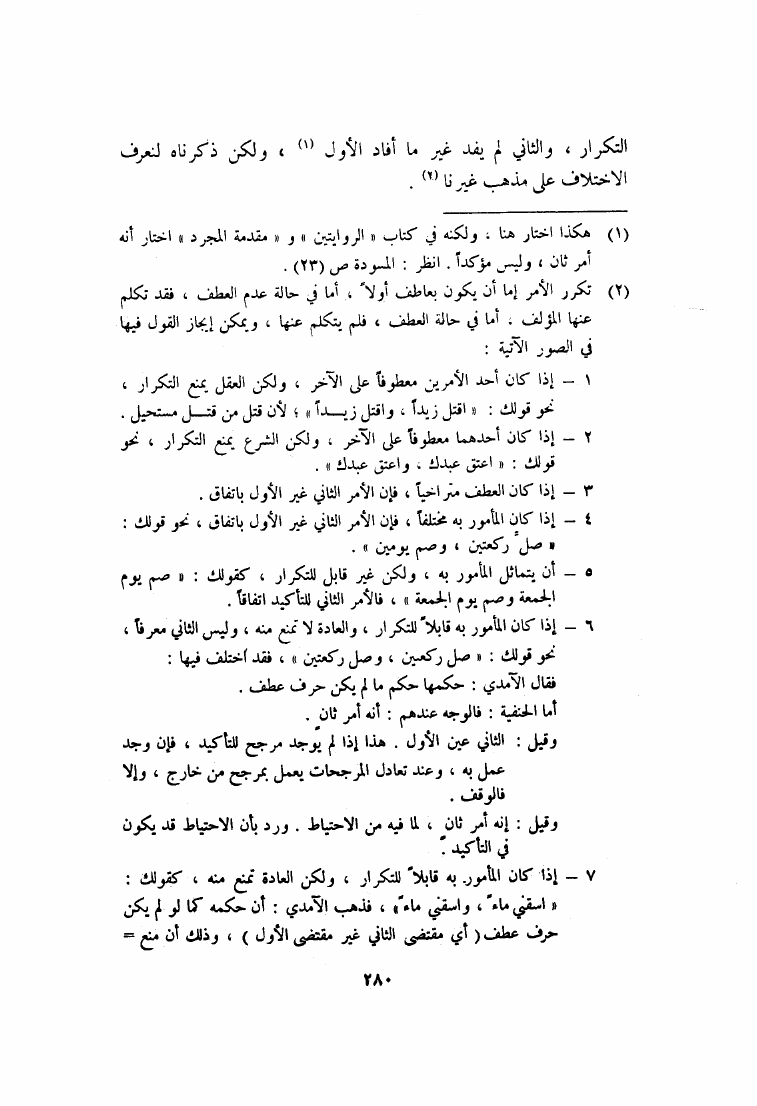 التكرار ، والثاني لم يفد غير ما أفاد الأول (١) ، ولكن ذكرناه لنعرف
الاختلاف على مذهب غيرنا (٢) .
(١) هكذا اختار هنا ، ولكنه في كتاب « الروايتين » و « مقدمة المجرد » اختار أنه
أمر ثان ، وليس مؤكداً . انظر : المسودة ص (٢٣) .
(٢) تكرر الأمر إما أن يكون بعاطف أولاً ، أما في حالة عدم العطف ، فقد تكلم
عنها المؤلف . أما في حالة العطف ، فلم يتكلم عنها ، ويمكن إيجاز القول فيها
في الصور الآتية :
١ – إذا كان أحد الأمرين معطوفاً على الآخر ، ولكن العقل يمنع التكرار ،
نحو قولك : « اقتل زيداً ، واقتل زيـــداً » ؛ لأن قتل من قتـــل مستحيل .
٢ – إذا كان أحدهما معطوفاً على الآخر ، ولكن الشرع يمنع التكرار ، نحو
قولك : « اعتق عبدك ، واعتق عبدك » .
٣ – إذا كان العطف متراخياً ، فإن الأمر الثاني غير الأول باتفاق .
٤ – إذا كان المأمور به مختلفاً ، فإن الأمر الثاني غير الأول باتفاق ، نحو قولك :
« صلِّ ركعتين ، وصم يومين » .
٥ – أن يتماثل المأمور به ، ولكن غير قابل للتكرار ، كقولك : « صم يوم
الجمعة وصم يوم الجمعة » ، فالأمر الثاني للتأكيد اتفاقاً .
٦ – إذا كان المأمور به قابلاً للتكرار ، والعادة لا تمنع منه ، وليس الثاني معرفاً ،
نحو قولك : « صل ركعين ، وصل ركعتين » ، فقد اختلف فيها :
فقال الآمدي : حكمها حكم ما لم يكن حرف عطف .
أما الحنفية : فالوجه عندهم : أنه أمر ثانٍ .
وقيل : الثاني عين الأول . هذا إذا لم يوجد مرجح للتأكيد ، فإن وجد
عمل به ، وعند تعادل المرجحات يعمل بمرجح من خارج ، وإلا
فالوقف .
وقيل : إنه أمر ثان ، لما فيه من الاحتياط . ورد بأن الاحتياط قد يكون
في التأكيد .
٧ – إذا كان المأمور به قابلاً للتكرار ، ولكن العادة تمنع منه ، كقولك :
« اسقني ماءً ، واسقني ماءً » ، فذهب الآمدي : أن حكمه كما لو لم يكن
حرف عطف ( أي مقتضى الثاني غير مقتضى الأول ) ، وذلك أن منع =
٢٨٠